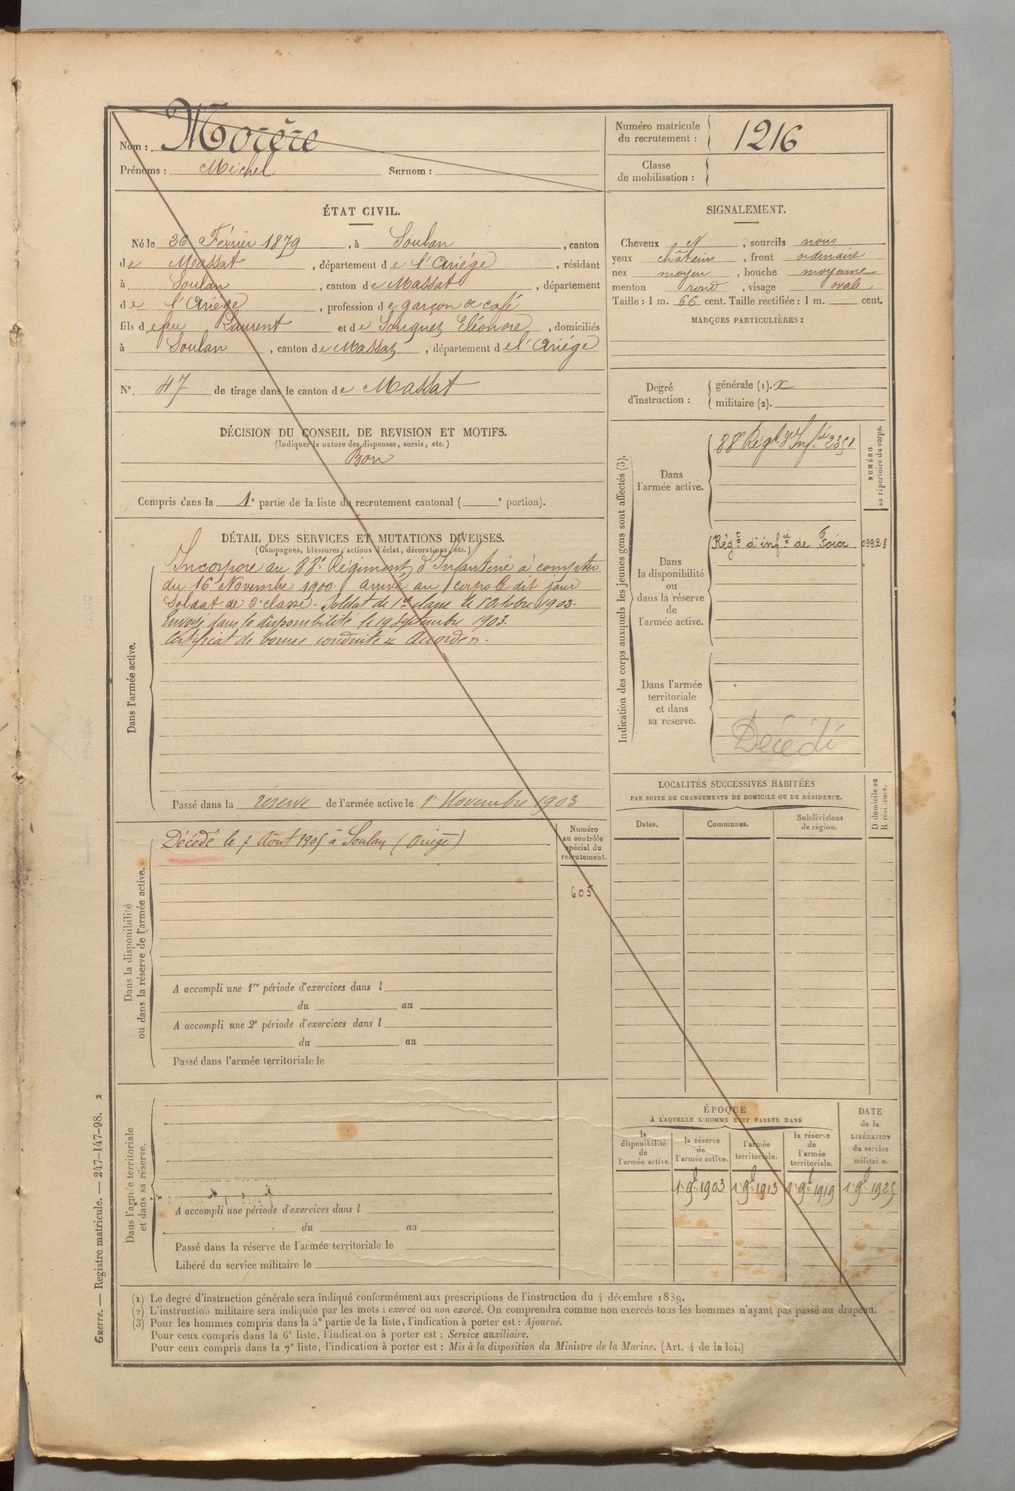 Nom : Morère
Prénoms : Michel Surnom :
Numéro matricule du recrutement : 1216
Classe de mobilisation :
ÉTAT CIVIL.
Né le 26 Février 1879, à Soulan, canton
de Massat, département de l'Ariège, résidant
à Soulan, canton de Massat, département
de l'Ariège, profession de garçon de café
fils de feu Laurent et de Souquet Eléonore, domiciliés
à Soulan, canton de Massat, département de l'Ariège
N° 47 de tirage dans le canton de Massat
SIGNALEMENT.
Cheveux N, sourcils noirs
yeux châtains, front ordinaire
nez moyen, bouche moyenne
menton rond, visage ovale
Taille : 1 m. 66 cent. Taille rectifiée : 1 m. cent.
MARQUES PARTICULIÈRES :
Degré d'instruction : générale (1). x
militaire (2).
DÉCISION DU CONSEIL DE REVISION ET MOTIFS.
(Indiquer la nature des dispenses, sursis, etc.)
Bon
Compris dans la 1e partie de la liste du recrutement cantonal ( e portion).
DÉTAIL DES SERVICES ET MUTATIONS DIVERSES.
(Campagnes, blessures, actions d'éclat, décorations, etc.)
Dans l'armée active.
Incorporé au 88e Régiment d'Infanterie à compter
du 16 Novembre 1900 arrivé au corps le dit jour
Soldat de 2e classe. Soldat de 1re classe le 1 octobre 1902.
Envoyé dans la disponibilité le 19 septembre 1903.
Certificat de bonne conduite « Accordé ».
Passé dans la réserve de l'armée active le 1r Novembre 1903
Indication des corps auxquels les jeunes gens sont affectés (3).
NUMÉRO au répertoire du corps.
Dans l'armée active.
88e Régt d'Infie 2351
Dans la disponibilité ou dans la réserve de l'armée active.
Régt d'infie de Foix 09928
Dans l'armée territoriale et dans sa réserve.
Décédé
Dans la disponibilité ou dans la réserve de l'armée active.
Décédé le 7 Août 1905 à Soulan (Ariège)
Numéro au contrôle spécial du recrutement.
605
A accompli une 1re période d'exercices dans l
du au
A accompli une 2e période d'exercices dans l
du au
Passé dans l'armée territoriale le
LOCALITÉS SUCCESSIVES HABITÉES
PAR SUITE DE CHANGEMENTS DE DOMICILE OU DE RÉSIDENCE.
Dates. Communes. Subdivisions de région. D domicile ou R résidence.
Dans l'armée territoriale et dans sa réserve.
A accompli une période d'exercices dans l
du au
Passé dans la réserve de l'armée territoriale le
Libéré du service militaire le
ÉPOQUE
À LAQUELLE L'HOMME DOIT PASSER DANS
la disponibilité de l'armée active.
la réserve de l'armée active.
l'armée territoriale.
la réserve de l'armée territoriale.
DATE de la LIBÉRATION du service militaire.
1r 9bre 1903 1r 9bre 1913 1r 9bre 1919 1r 9bre 1925
Guerre. — Registre matricule. — 247-147-98. 2
(1) Le degré d'instruction générale sera indiqué conformément aux prescriptions de l'instruction du 4 décembre 1889.
(2) L'instruction militaire sera indiquée par les mots : exercé ou non exercé. On comprendra comme non exercés tous les hommes n'ayant pas passé au drapeau.
(3) Pour les hommes compris dans la 5e partie de la liste, l'indication à porter est : Ajourné.
Pour ceux compris dans la 6e liste, l'indication à porter est : Service auxiliaire.
Pour ceux compris dans la 7e liste, l'indication à porter est : Mis à la disposition du Ministre de la Marine. (Art. 4 de la loi.)